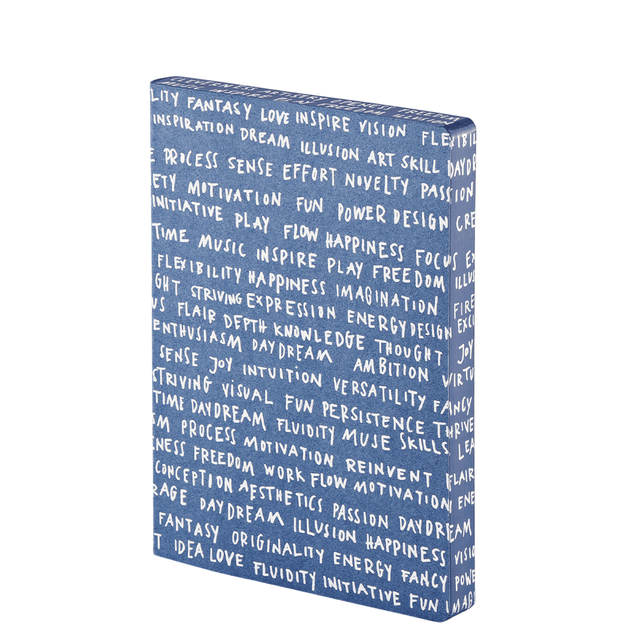 LITY FANTASY LOVE INSPIRE VISION FLEXIBIL
INSPIRATION DREAM ILLUSION ART SKILL DAYD
E PROCESS SENSE EFFORT NOVELTY PASSION
ETY MOTIVATION FUN POWER DESIGN CRE
INITIATIVE PLAY FLOW HAPPINESS FOCUS EX
TIME MUSIC INSPIRE PLAY FREEDOM ILLUS
FLEXIBILITY HAPPINESS IMAGINATION FIRE
GHT STRIVING EXPRESSION ENERGY DESIGN EXCU
US FLAIR DEPTH KNOWLEDGE THOUGHT JOY
ENTHUSIASM DAYDREAM AMBITION VIRTU
SENSE JOY INTUITION VERSATILITY FANCY
STRIVING VISUAL FUN PERSISTENCE THRIVE
TIME DAYDREAM FLUIDITY MUSE SKILLS LEA
SM PROCESS MOTIVATION REINVENT FLAIR
NESS FREEDOM WORK FLOW MOTIVATION ENE
CONCEPTION AESTHETICS PASSION DAYDREAM
RAGE DAYDREAM ILLUSION HAPPINESS VISIO
FANTASY ORIGINALITY ENERGY FANCY POWE
T IDEA LOVE FLUIDITY INITIATIVE FUN IMAG